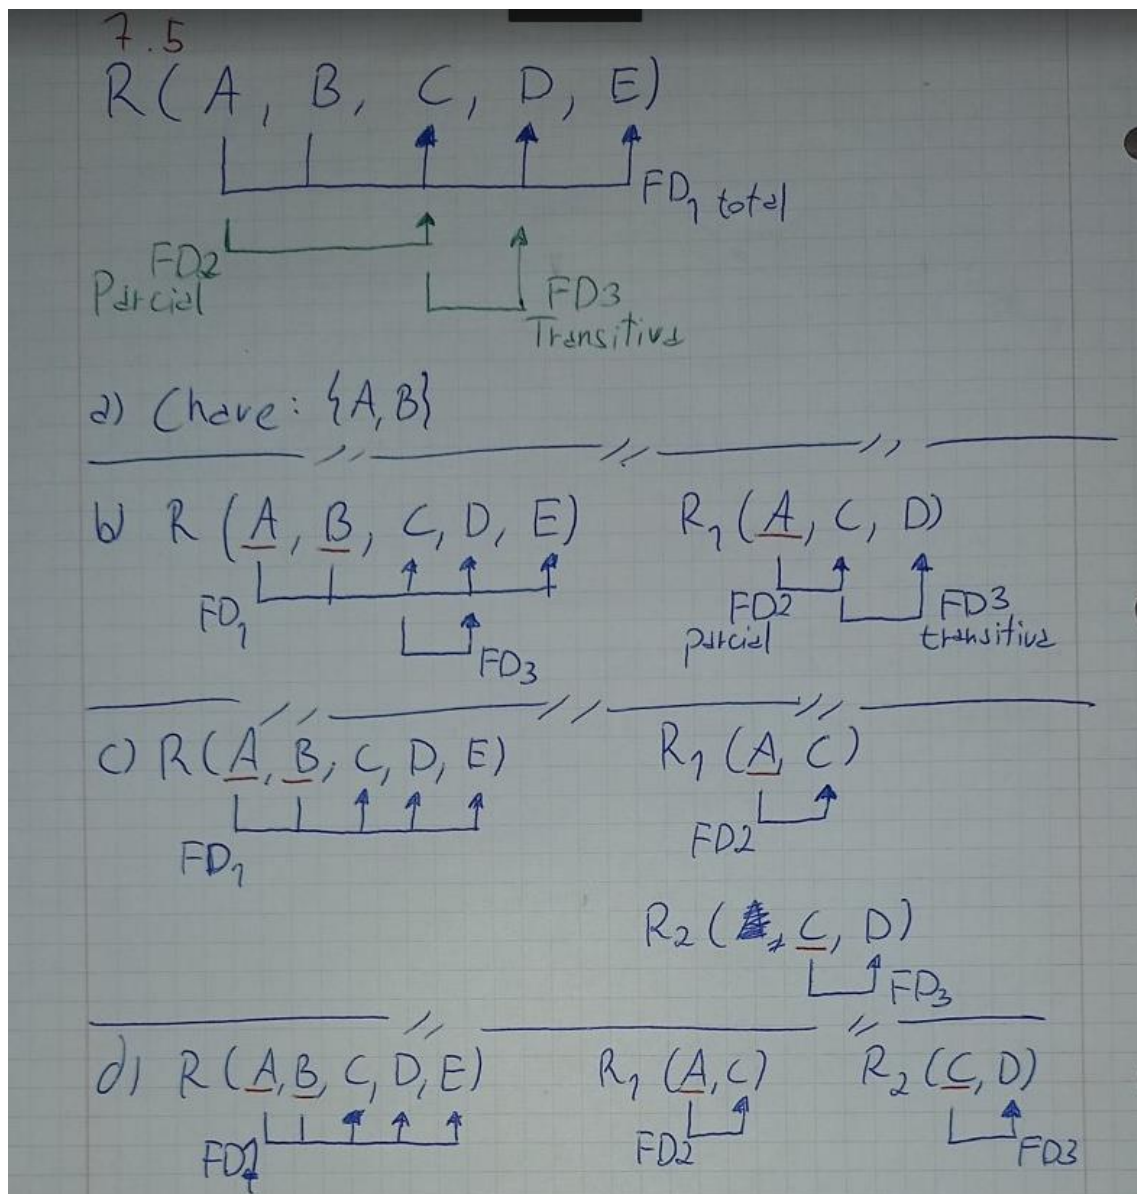 7.5
R(A, B, C, D, E)
FD1 total
FD2
Parcial
FD3
Transitiva
a) Chave: {A,B}
b) R (A, B, C, D, E)
R1 (A, C, D)
FD1
FD3
FD2
parcial
FD3
transitiva
c) R(A, B, C, D, E)
R1 (A, C)
FD1
FD2
R2 ( , C, D)
FD3
d) R (A, B, C, D, E)
R1 (A, C)
R2 (C, D)
FD1
FD2
FD3